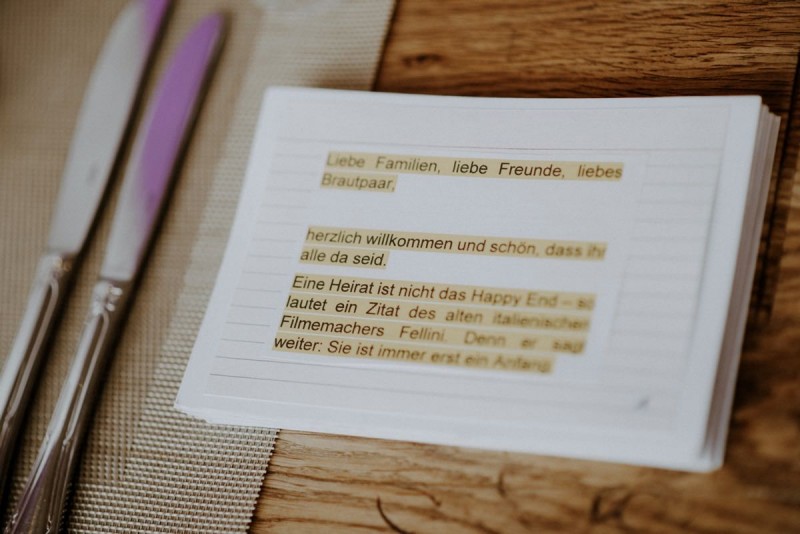 Liebe Familien, liebe Freunde, liebes
Brautpaar,
herzlich willkommen und schön, dass ihr
alle da seid.
Eine Heirat ist nicht das Happy End – so
lautet ein Zitat des alten italienischen
Filmemachers Fellini. Denn er sagt
weiter: Sie ist immer erst ein Anfang.